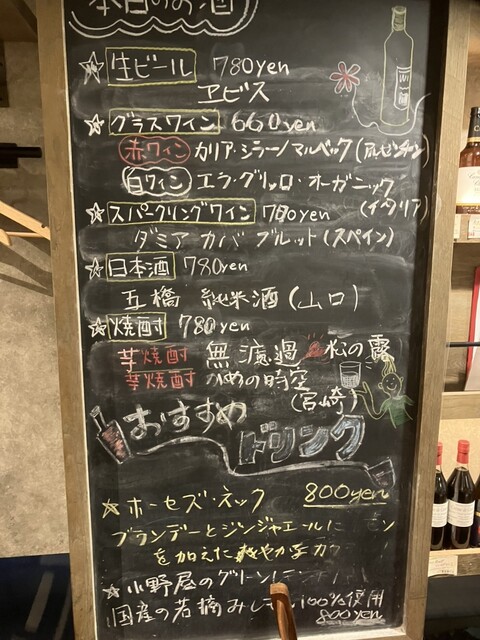 本日のお酒
☆ 生ビール 780yen
ヱビス
☆ グラスワイン 660yen
赤ワイン カリア・シラー/マルベック(アルゼンチン)
白ワイン エラ・グリッロ・オーガニック
(イタリア)
☆ スパークリングワイン 780yen
ダミア カバ ブルット(スペイン)
☆ 日本酒 780yen
五橋 純米酒(山口)
☆ 焼酎 780yen
芋焼酎 無濾過 松の露
芋焼酎 かめの時空
(宮崎)
おすすめ
ドリンク
☆ ホーセズ・ネック 800yen
ブランデーとジンジャエールに
を加えた爽やかな
☆ 小野屋のグリーン
国産の若摘み 100%使用
800yen